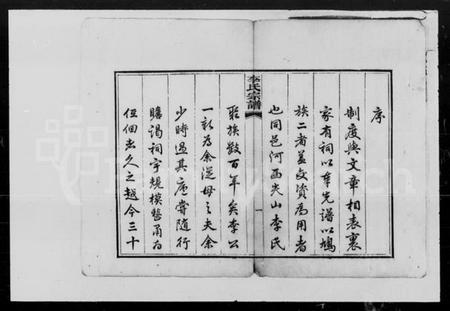 李氏宗譜
序
制度與文章相表裏
家有祠以奉先譜以鳩
族二者並交資為用者
也同邑河西尖山李氏
聚族數百年矣李公
一新為余從母之夫余
少時過其庐嘗隨行
瞻谒祠宇規模整甬為
低佪出久之越今三十
一